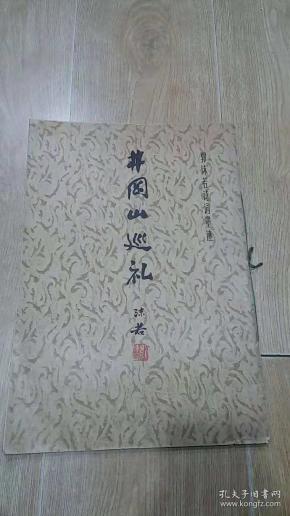 郭沫若诗词墨迹
井冈山巡礼
沫若
孔夫子旧书网
www.kongfz.com